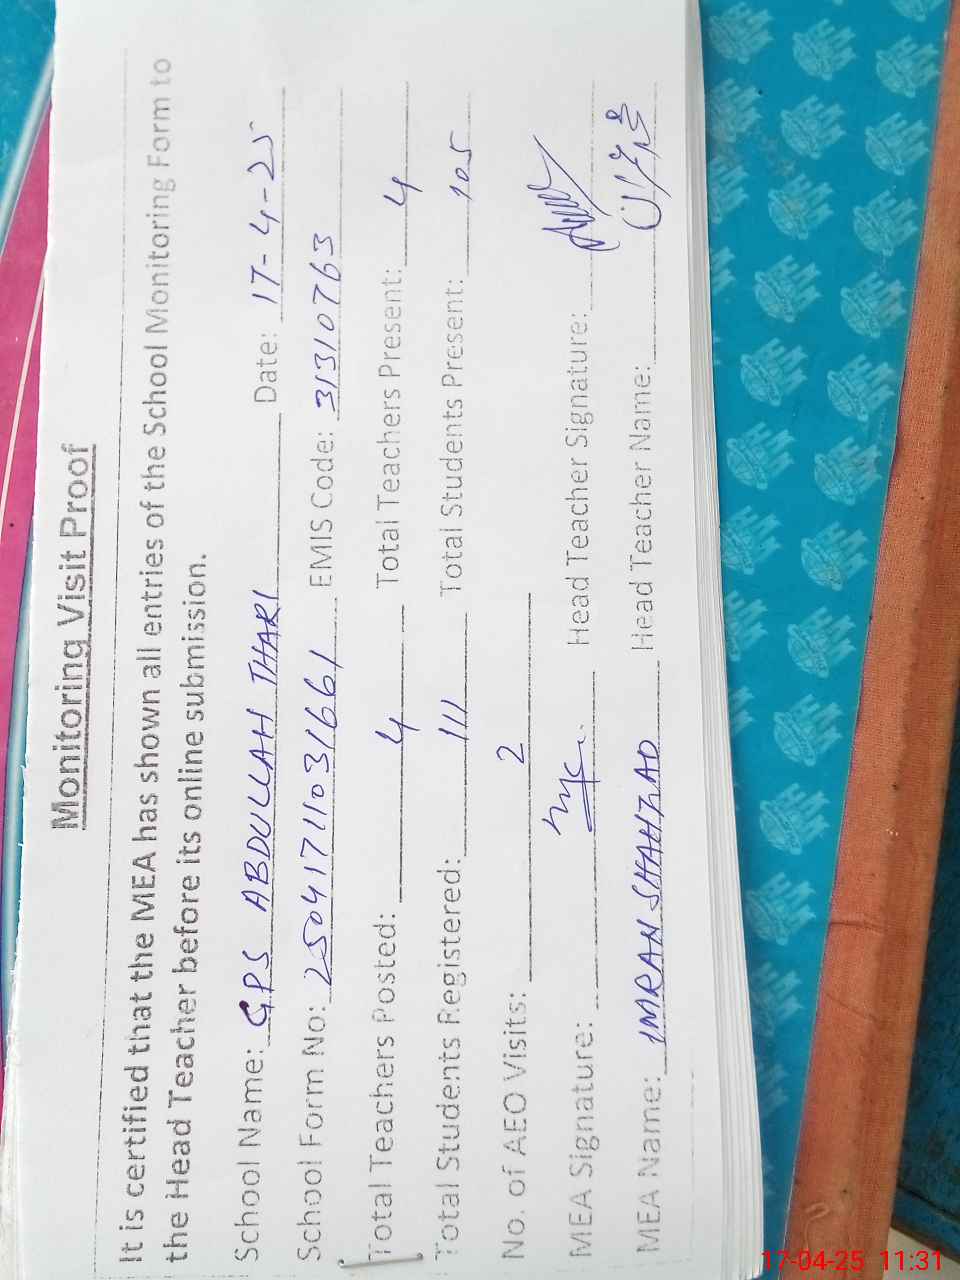 Monitoring Visit Proof
It is certified that the MEA has shown all entries of the School Monitoring Form to
the Head Teacher before its online submission.
School Name: GPS ABDULLAH THARI Date: 17-4-25
School Form No: 25041711031661 EMIS Code: 31310763
Total Teachers Posted: 4 Total Teachers Present: 4
Total Students Registered: 111 Total Students Present: 105
No. of AEO Visits: 2
MEA Signature: Head Teacher Signature:
MEA Name: IMRAN SHAHZAD Head Teacher Name:
17-04-25 11:31